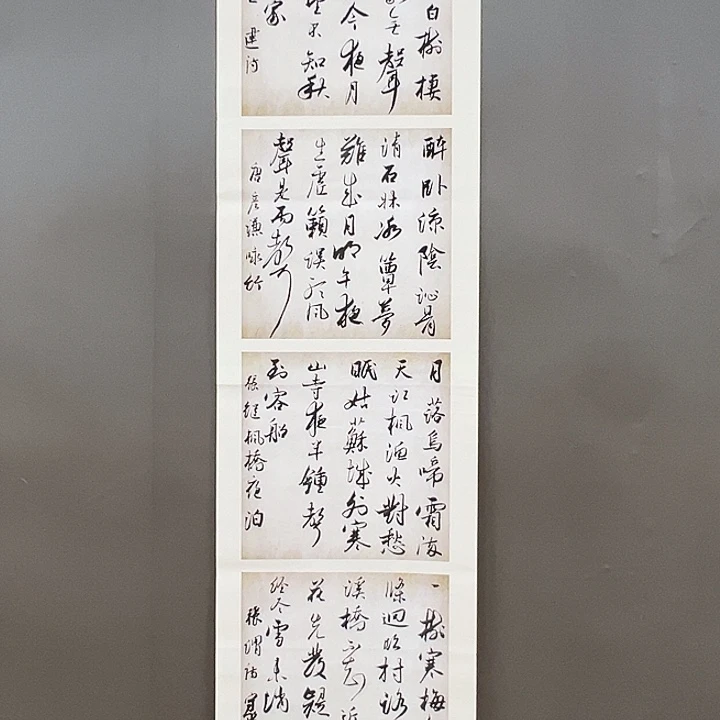 白樹棲
無聲
今夜月
望不知秋
家
建詩
醉卧涼陰沁骨
清石牀冰簟夢
難成月明午夜
生虛籟誤聽風
聲是雨聲
唐彥謙咏竹
月落烏啼霜滿
天江楓漁火對愁
眠姑蘇城外寒
山寺夜半鐘聲
到客船
張繼楓橋夜泊
一樹寒梅
條迥臨村路
溪橋不知近
花先發疑
經冬雪未銷
張謂